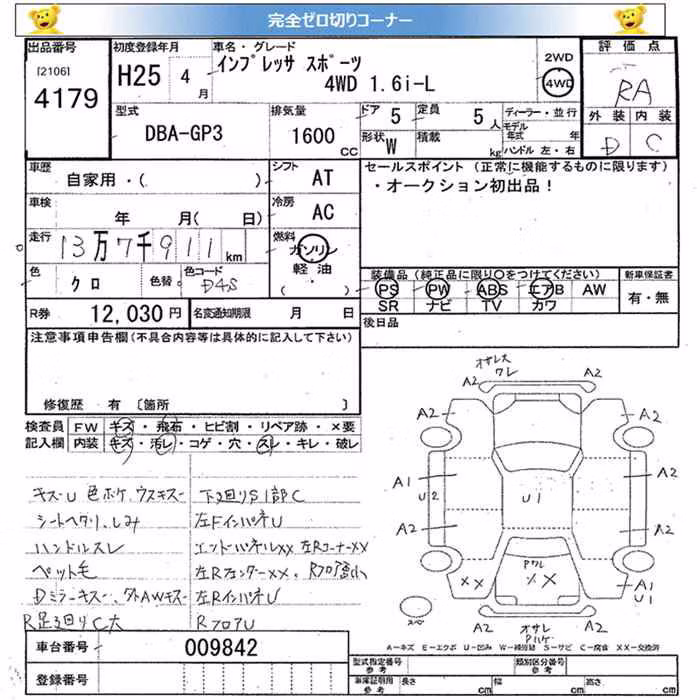 完全ゼロ切りコーナー
出品番号
[2106]
4179
初度登録年月
H25 4月
車名・グレード
インプレッサ スポーツ
4WD 1.6i-L
2WD
4WD
評価点
RA
外装 内装
D C
型式
DBA-GP3
排気量
1600 CC
ドア 5
定員 5人
形状 W
積載 kg
ディーラー・並行
モデル年式 年
ハンドル 左・右
車歴
自家用・( )
シフト AT
車検
年 月( 日)
冷房 AC
走行
13万7千911km
燃料
ガソリン
軽油
( )
色
クロ
色替
色コード
D4S
セールスポイント (正常に機能するものに限ります)
・オークション初出品!
装備品 (純正品に限り○をつけてください)
PS PW ABS エアB AW
SR ナビ TV カワ
新車保証書
有・無
R券 12,030円
名変通知期限 月 日
後日品
注意事項申告欄(不具合内容等は具体的に記入して下さい)
修復歴 有 〔箇所 〕
検査員記入欄
FW キズ・飛石・ヒビ割・リペア跡・×要
内装 キズ・汚レ・コゲ・穴・スレ・キレ・破レ
キズU 色ボケ、ウスキズ
シートヘタリ、しみ
ハンドルスレ
ペット毛
Dミラーキズ、外AWキズ
R足まわりC大
下まわりS1部C
左FインパネU
エンドパネルXX 左RコーナーXX
左RフェンダーXX、
左RインパネU
RフロアU
オサレ大
ワレ
A2 A2
A2 A2
A1 U2 A2
U1
A2 A2
XX
Pワレ
XX
A1
U1
A2 A2
オサレ
スペア
A-キズ E-エクボ U-凹み W-補修跡 S-サビ C-腐食 XX-交換済
車台番号 009842
登録番号
型式指定番号 参考
類別区分番号 参考
車庫証明用 参考
長さ cm 幅 cm 高さ cm